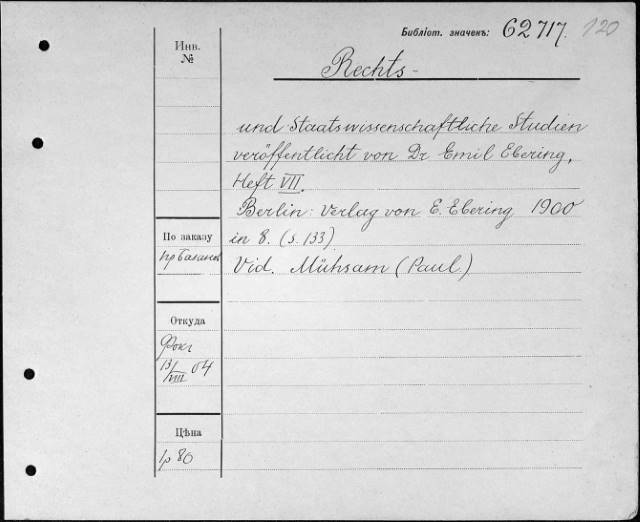 Библіот. значекъ: 62717. 120
Инв.
№
Rechts-
und Staatswissenschaftliche Studien
veröffentlicht von Dr Emil Ebering,
Heft VII.
Berlin: Verlag von E. Ebering 1900
in 8. (S. 133)
Vid. Mühsam (Paul.)
По заказу
Откуда
Фокг
13/VIII 04
Цѣна
1р 80